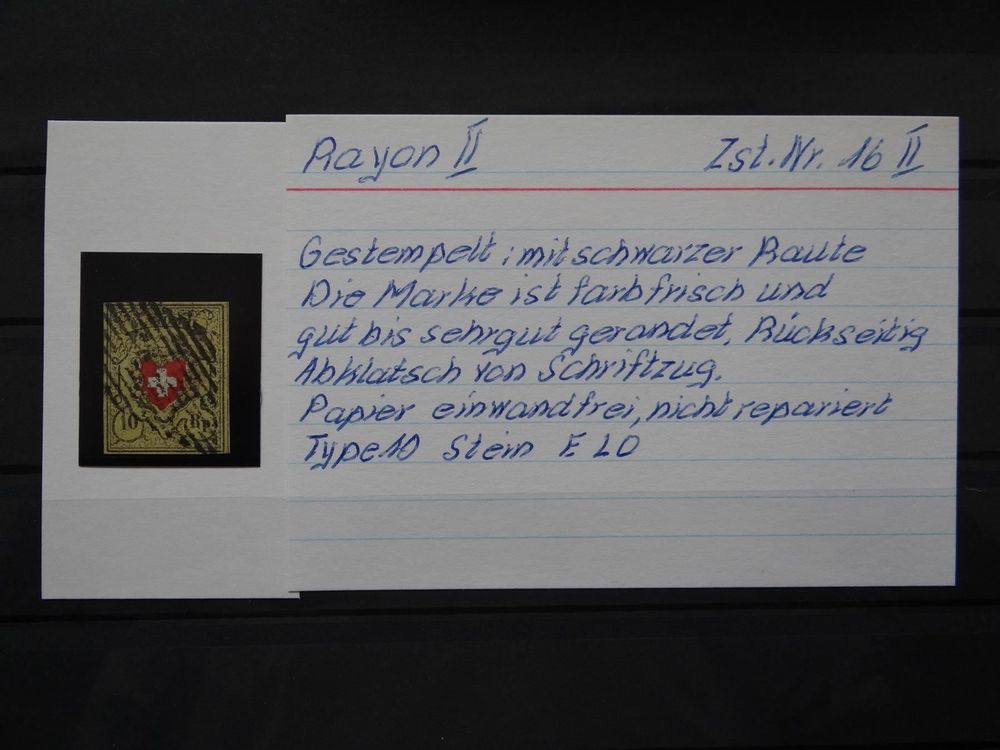 Rayon II Zst. Nr. 16 II
Gestempelt: mit schwarzer Raute
Die Marke ist farbfrisch und
gut bis sehrgut gerandet, Rückseitig
Abklatsch von Schriftzug.
Papier einwandfrei, nicht repariert
Type 10 Stein E LO
10